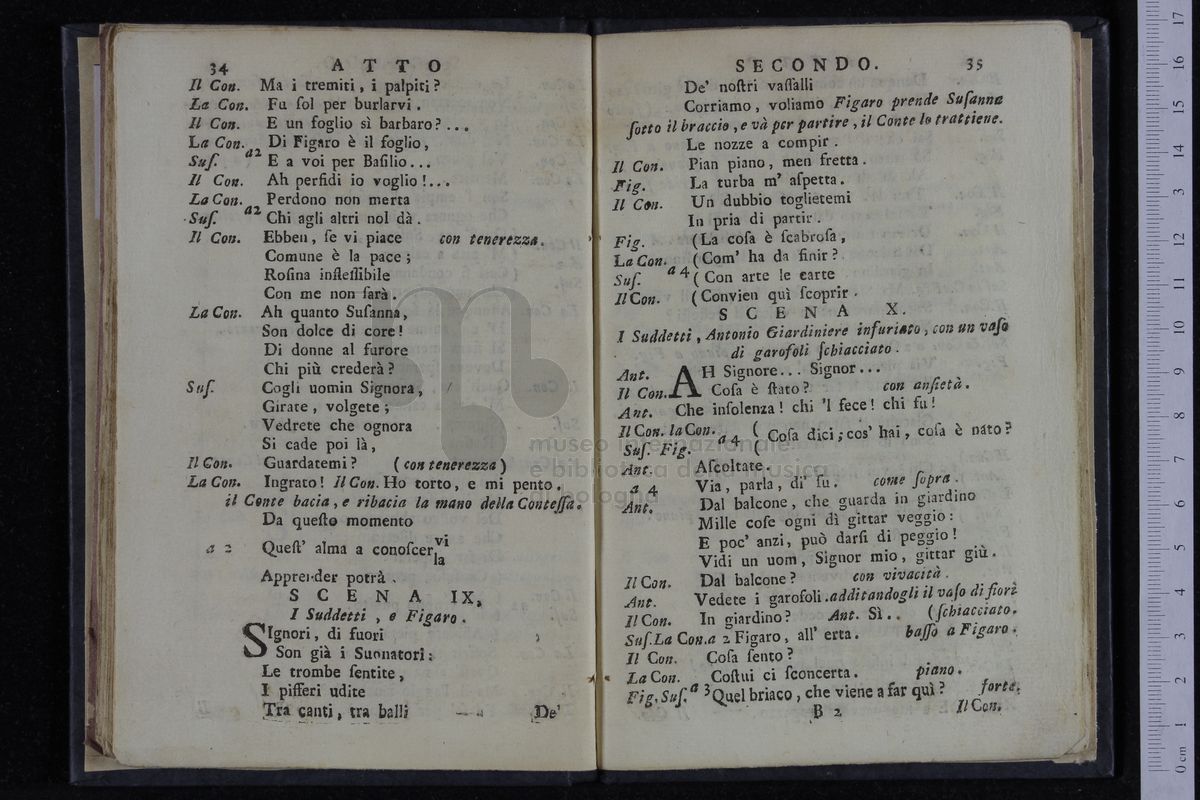 34 ATTO
Il Con. Ma i tremiti, i palpiti?
La Con. Fu ſol per burlarvi.
Il Con. E un foglio sì barbaro?...
La Con. Di Figaro è il foglio,
Suſ. a2 E a voi per Baſilio...
Il Con. Ah perfidi io voglio!...
La Con. Perdono non merta
Suſ. a2 Chi agli altri nol dà.
Il Con. Ebben, ſe vi piace con tenerezza.
Comune è la pace;
Roſina infleſſibile
Con me non ſarà.
La Con. Ah quanto Suſanna,
Son dolce di core!
Di donne al furore
Chi più crederà?
Suſ. Cogli uomin Signora,
Girate, volgete;
Vedrete che ognora
Si cade poi là,
Il Con. Guardatemi? (con tenerezza)
La Con. Ingrato! Il Con. Ho torto, e mi pento.
il Conte bacia, e ribacia la mano della Conteſſa.
Da queſto momento
a 2 Queſt' alma a conoſcer vi
la
Apprender potrà.
SCENA IX.
I Suddetti, e Figaro.
SIgnori, di fuori
Son già i Suonatori:
Le trombe ſentite,
I pifferi udite
Tra canti, tra balli
De'
SECONDO. 35
De' noſtri vaſſalli
Corriamo, voliamo Figaro prende Suſanna
ſotto il braccio, e và per partire, il Conte lo trattiene.
Le nozze a compir.
Il Con. Pian piano, men fretta.
Fig. La turba m' aſpetta.
Il Con. Un dubbio toglietemi
In pria di partir.
Fig. (La coſa è ſcabroſa,
La Con. (Com' ha da finir?
Suſ. a 4 (Con arte le carte
Il Con. (Convien quì ſcoprir.
SCENA X.
I Suddetti, Antonio Giardiniere infuriato, con un vaſo
di garofoli ſchiacciato.
Ant. AH Signore... Signor...
Il Con. Coſa è ſtato? con anſietà.
Ant. Che inſolenza! chi 'l fece! chi fu!
Il Con. la Con. (
Suſ. Fig. a 4 ( Coſa dici; cos' hai, coſa è nato?
Ant. Aſcoltate.
a 4 Via, parla, di' ſu. come ſopra.
Ant. Dal balcone, che guarda in giardino
Mille coſe ogni dì gittar veggio:
E poc' anzi, può darſi di peggio!
Vidi un uom, Signor mio, gittar giù.
Il Con. Dal balcone? con vivacità.
Ant. Vedete i garofoli. additandogli il vaſo di fiori
Il Con. In giardino? Ant. Sì.. (ſchiacciato.
Suſ. La Con. a 2 Figaro, all' erta. baſſo a Figaro.
Il Con. Coſa ſento?
La Con. Coſtui ci ſconcerta. piano.
Fig. Suſ. a 3 Quel briaco, che viene a far quì? forte.
B 2 Il Con.
museo internazionale
e biblioteca della musica
di bologna
0 cm 1 2 3 4 5 6 7 8 9 10 11 12 13 14 15 16 17